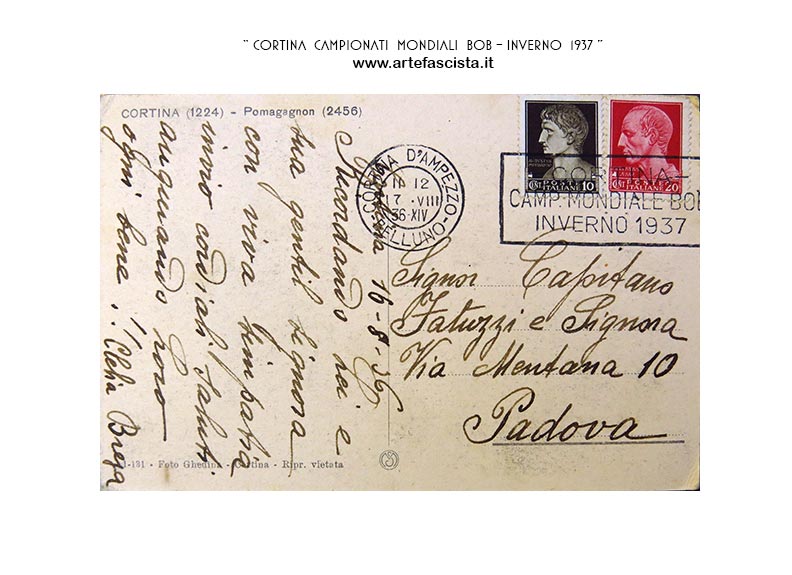 “ CORTINA CAMPIONATI MONDIALI BOB – INVERNO 1937 ”
www.artefascista.it
CORTINA (1224) – Pomagagnon (2456)
16-8-36
Ricordando lei e
sua gentil Signora
con viva simpatia
invio cordiali saluti
augurando loro
ogni bene!
Clelia Brega
CORTINA D'AMPEZZO
11 12
17 · VIII
36-XIV
BELLUNO
POSTE
ITALIANE 10
POSTE
ITALIANE 20
CORTINA
CAMP. MONDIALE BOB
INVERNO 1937
Signor Capitano
Fatuzzi e Signora
Via Mentana 10
Padova
-131 - Foto Ghedina - Cortina - Ripr. vietata